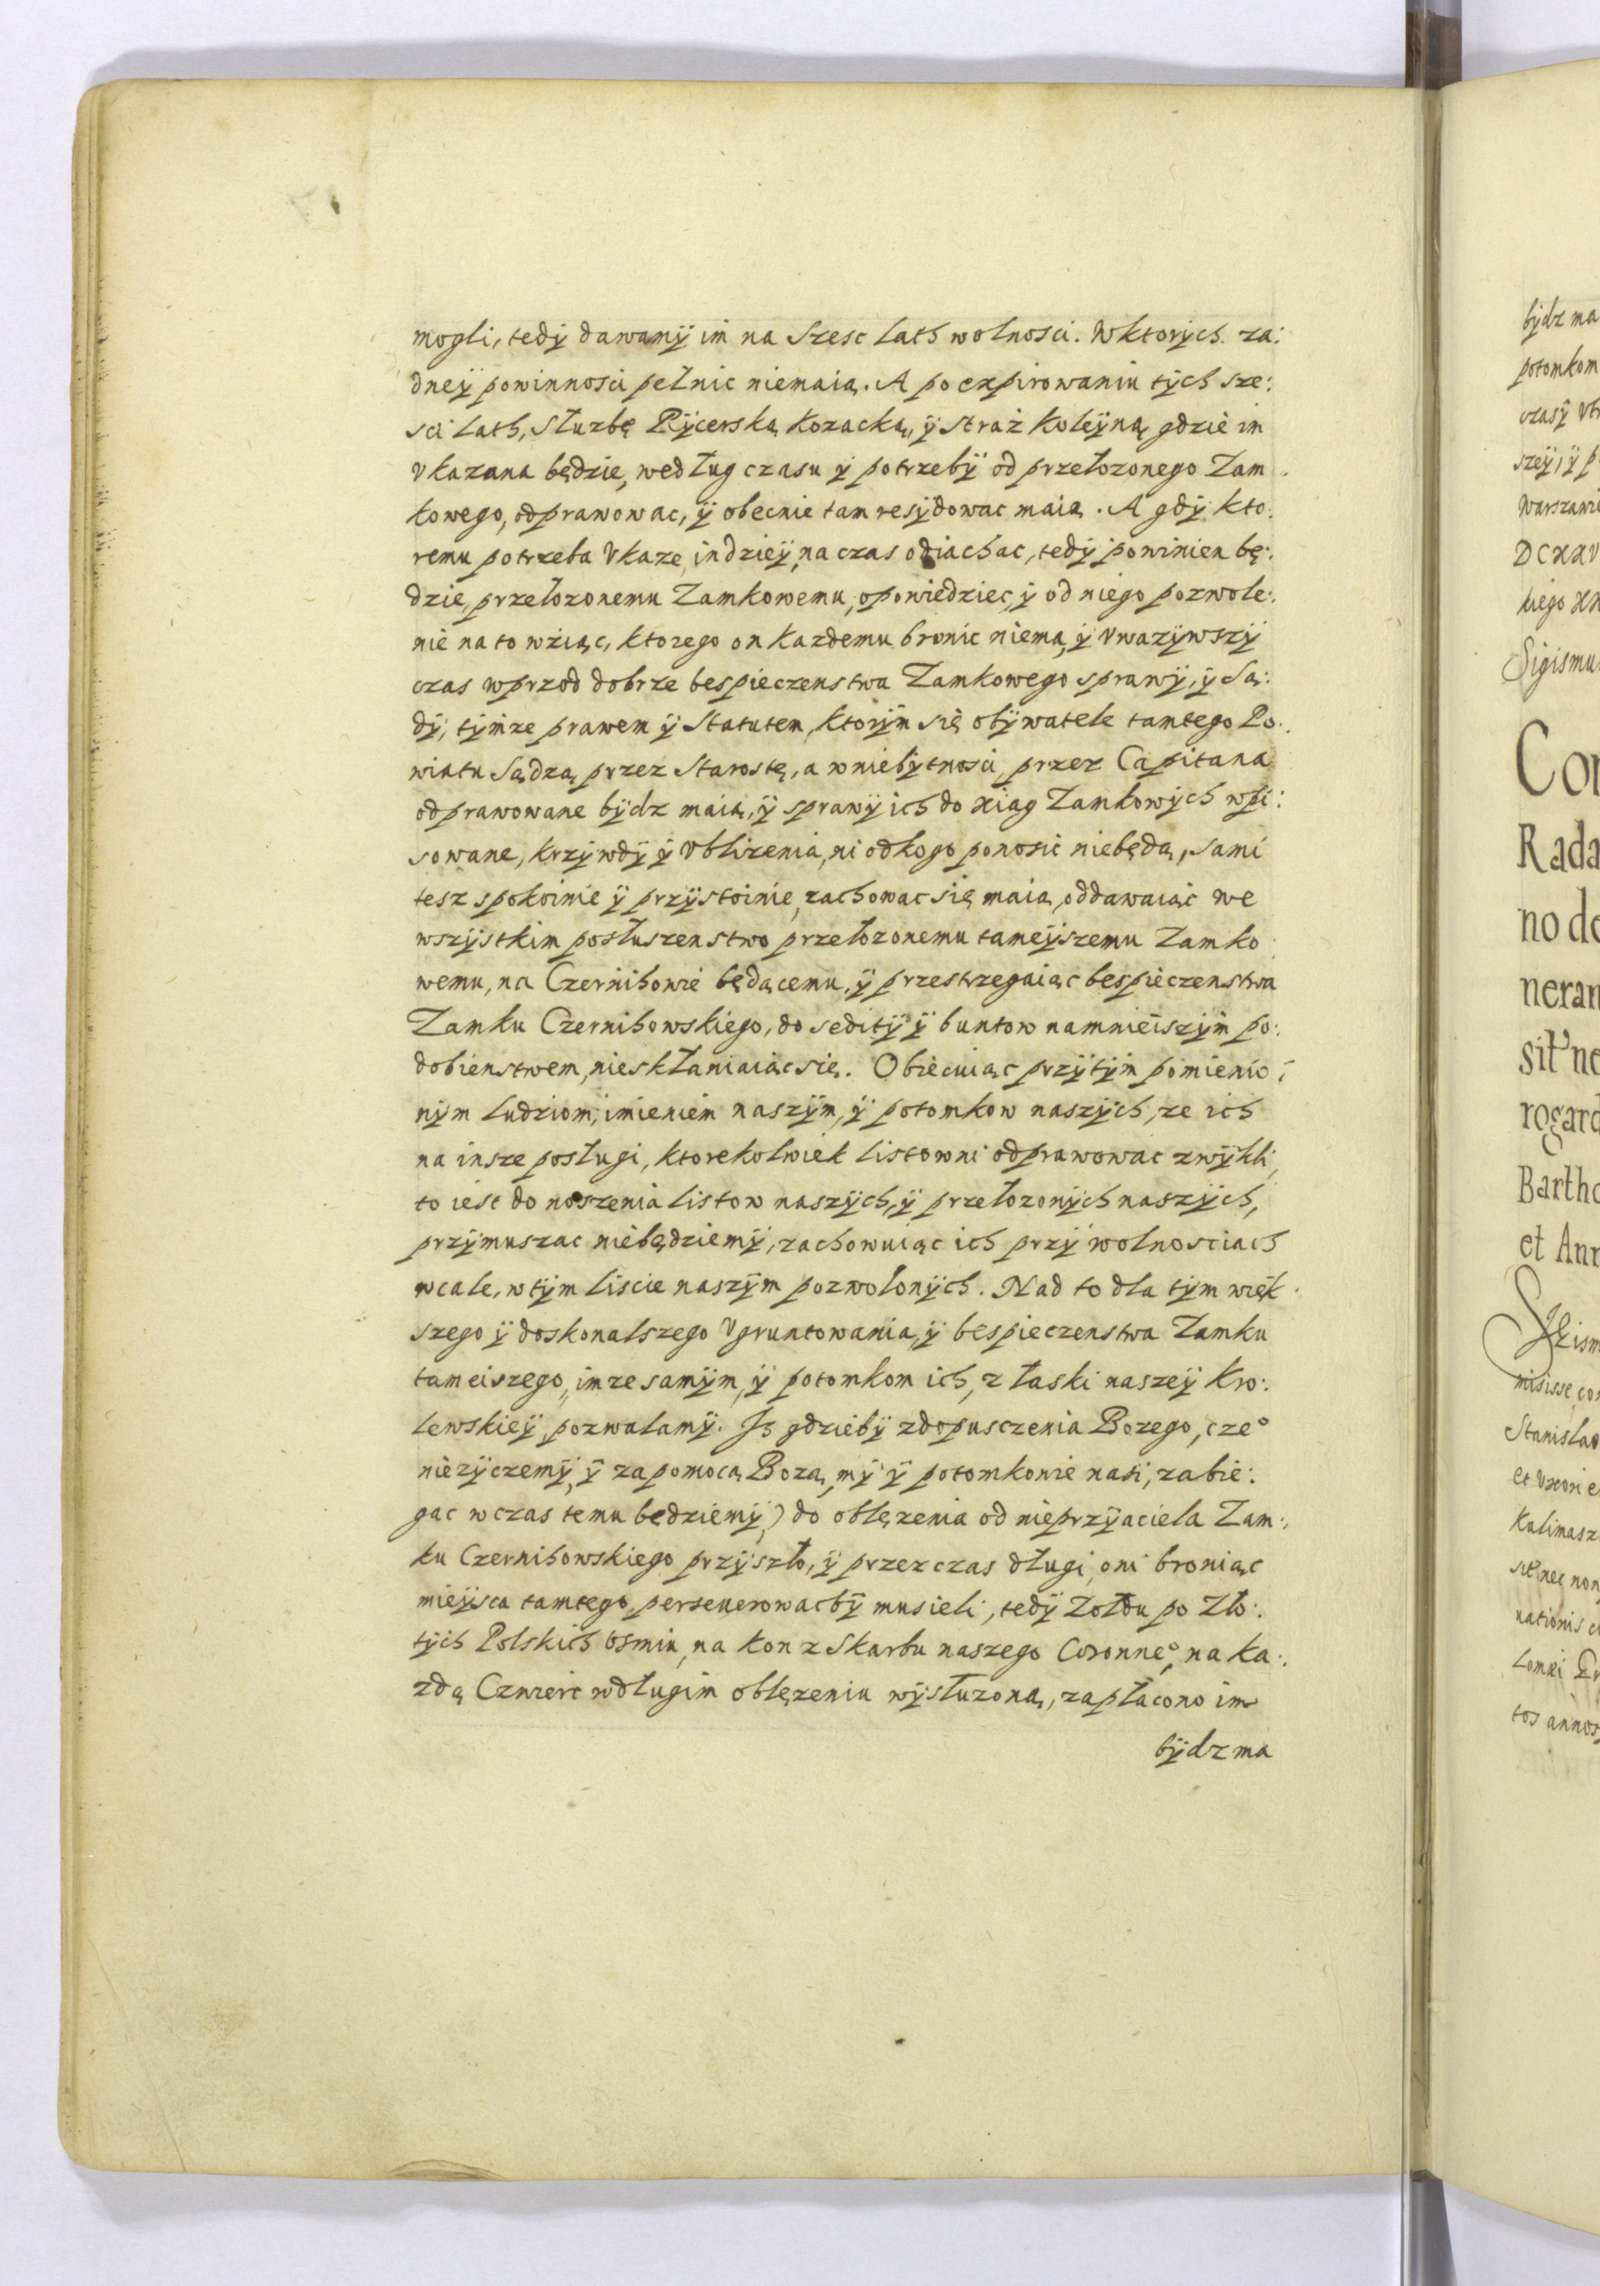 mogli, tedÿ dawamÿ im na Szesc lath wolnosci. Wktorÿch za:
dneÿ powinnosci pełnic niemaią. A po expirowaniu tÿch sze:
sci lath, Służbę Rÿcerską Kozacką, ÿ straż Koleÿną gdzie im
vkazana będzie, według czasu ÿ potrzebÿ od przełozonego Zam
kowego, odprawowac, ÿ obecnie tam resÿdowac maią. A gdÿ kto:
remu potrzeba vkaze, indzieÿ, na czas odiachac, tedÿ powinien bę:
dzie, przełozonemu Zamkowemu, opowiedziec, ÿ od niego pozwole:
nie na to wziąc, ktorego on Kazdemu bronic niema, ÿ vwazÿwszÿ
czas wprzod dobrze bespieczenstwa Zamkowego sprawÿ, ÿ Są:
dÿ, tÿmze prawem ÿ Statutem, ktorÿm się obÿwatele tamtego Po:
wiatu Sądzą przez Starostę, a wniebÿtnosci, przez Capitana
odprawowane bÿdz maią, ÿ sprawÿ ich do xiąg Zamkowÿch wpi:
sowane, krzÿwdÿ ÿ vblizenia, ni odkogo ponosic niebędą, sami
tesz spokoinie ÿ przÿstoinie, zachowac się maią, oddawaiąc we
wszÿstkim posłuszenstwo przełozonemu tameÿszemu Zamko
wemu, na Czernihowie będącemu, ÿ przestrzegaiąc bespieczenstwa
Zamku Czernihowskiego, do seditÿ ÿ buntow namnieiszÿm po:
dobienstwem, niesklaniaiąc się. Obiecuiąc przÿtÿm pomienio:
nÿm ludziom, imieniem naszÿm, ÿ potomkow naszÿch, ze ich
na insze posługi, ktorekolwiek listowni odprawowac zwÿkli,
to iest do noszenia listow naszÿch, ÿ przełozonÿch naszÿch,
przÿmuszac niebędziemÿ, zachowuiąc ich przÿ wolnosciach
wcale, wtÿm liscie naszÿm pozwolonÿch. Nad to dla tym więk
szego ÿ doskonalszego vgruntowania, ÿ bespieczenstwa Zamku
tameiszego, imze samÿm, ÿ potomkom ich, z łaski naszeÿ Kro:
lewskieÿ, pozwalamÿ. Iz gdziebÿ zdopusczenia Bozego, cze°
nieżÿczemÿ, ÿ zapomocą Bozą, mÿ ÿ potomkowie nasi, zabie:
gac wczas temu będziemÿ) do oblęzenia od nieprzÿaciela Zam:
ku Czernihowskiego przÿszło, ÿ przez czas długi, oni broniąc
mieÿsca tamtego, perseuerowacbÿ musieli, tedÿ Zołdu po Zło:
tÿch Polskich osmiu, na kon z Skarbu naszego Coronne°, na ka:
zdą Czwierc wdługim oblęzeniu wÿsłuzoną, zapłacono im
bÿdz ma

bÿdz ma
potomkom
czasÿ
szeÿ, ÿ
DCXXV
Cor
Rada
no de
neran
sit ne
rogard
Bartho
et Ann
misisse
Stanislao
lomei
tos annos